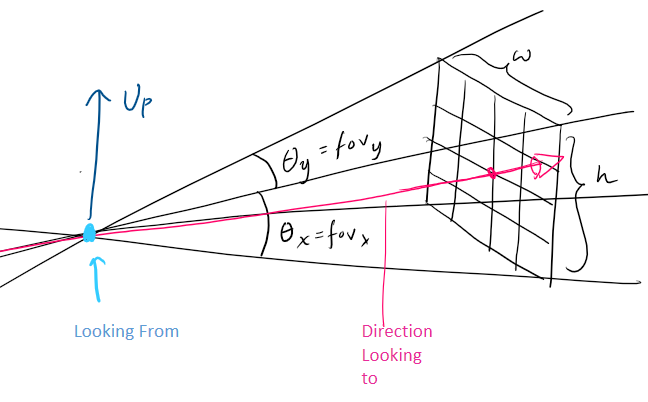 w
Up
θy = fovy
h
θx = fovx
Looking From
Direction
Looking
to